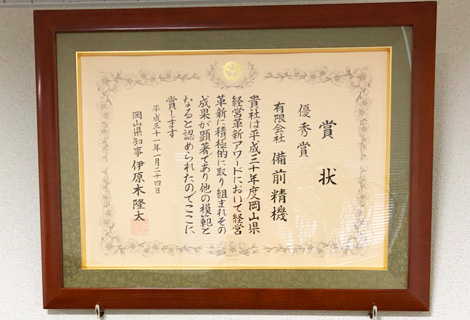 賞状
優秀賞
有限会社 備前精機
貴社は平成三十年度岡山県
経営革新アワードにおいて経営
革新に積極的に取り組まれその
成果が顕著であり他の模範と
なると認められたのでここに
賞します
平成三十一年一月二十四日
岡山県知事 伊原木隆太